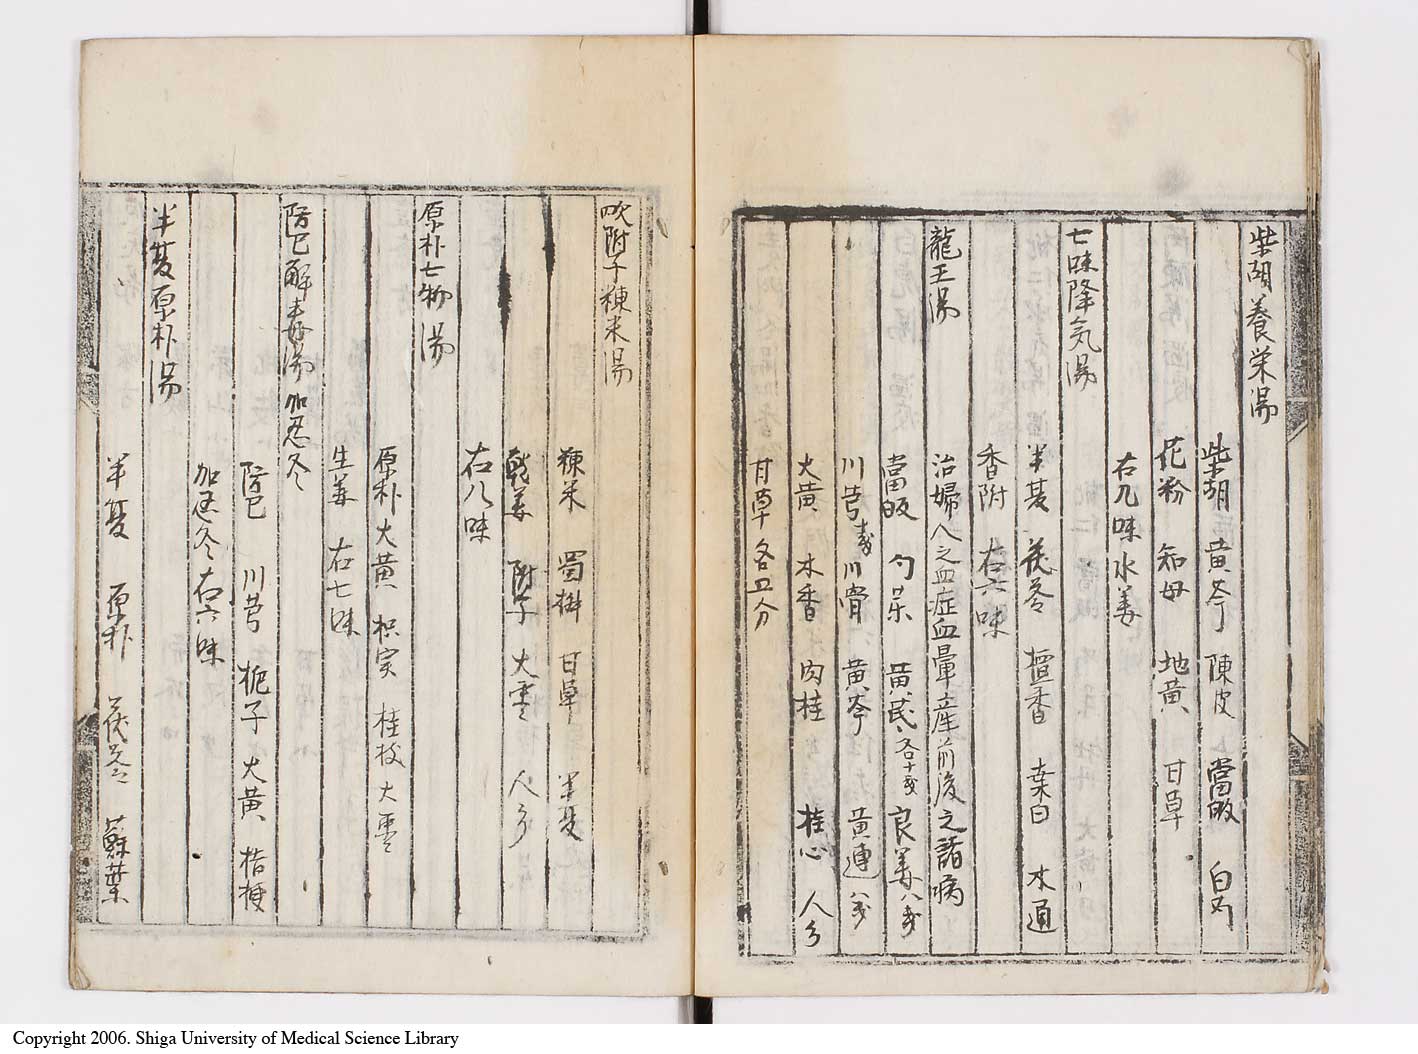 柴胡養栄湯
柴胡 黄芩 陳皮 當皈 白芍
花粉 知母 地黄 甘草
右九味水姜
七味降気湯
半夏 茯苓 檀香 桑白 木通
香附 右六味
龍王湯
治婦人之血症血暈産前後之諸病
當皈 勺薬 黄芪各十戔 良姜八戔
川芎戔 川骨 黄芩 黄連八戔
大黄 木香 肉桂 桂心 人参
甘草各五分
附子粳米湯
粳米 蜀椒 甘草 半夏
乾姜 附子 大棗 人参
右八味
厚朴七物湯
厚朴 大黄 枳実 桂枝 大棗
生姜 右七味
防已解毒湯 加忍冬
防已 川芎 梔子 大黄 桔梗
加忍冬右六味
半夏厚朴湯
半夏 厚朴 茯苓 蘇葉